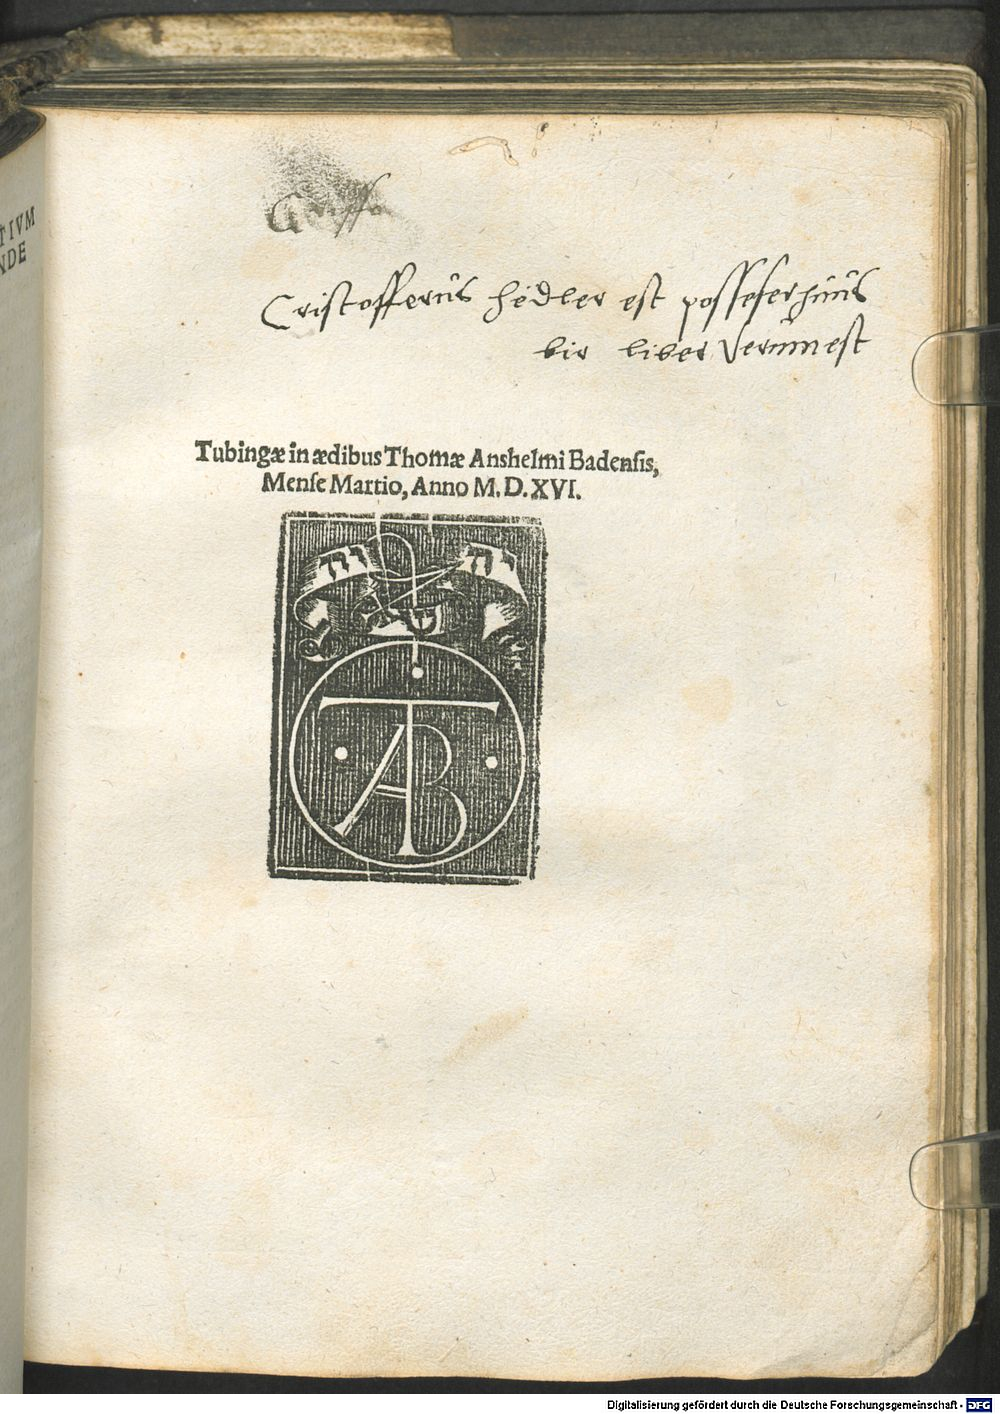 TIVM
NDE
Cristofferůs hedler est possesser hůiůs
bir liber Verům est
Tubingæ in ædibus Thomæ Anshelmi Badensis,
Mense Martio, Anno M. D. XVI.
יה
וה
ש
TAB
Digitalisierung gefördert durch die Deutsche Forschungsgemeinschaft - DFG